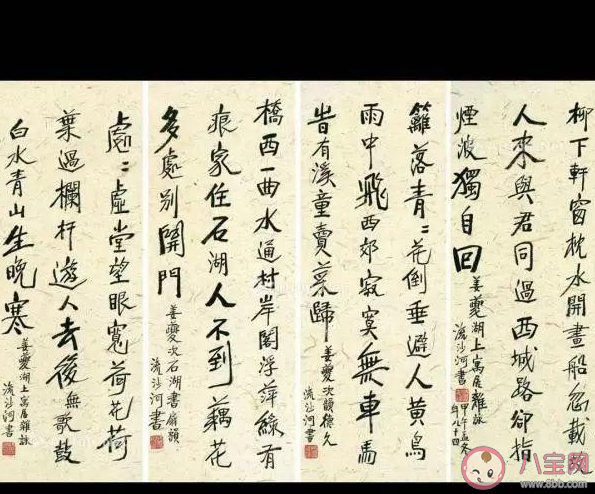 柳下軒窗枕水開畫船忽載故
人來與君同過西城路卻指
煙波獨自回
姜夔湖上寓居雜詠
甲午孟冬
流沙河書
年八十四
籬落青〻花倒垂避人黄鳥
雨中飛西郊寂寞無車馬
旹有溪童賣菜歸
姜夔次韻德久
流沙河書
橋西一曲水通村岸閣浮萍綠有
痕家住石湖人不到藕花
多處別開門
姜夔次石湖書扇韻
流沙河書
處〻虛堂望眼寬荷花荷
葉過欄杆遊人去後無歌鼓
白水青山生晚寒
姜夔湖上寓居雜詠
流沙河書
八宝网
www.8bb.com